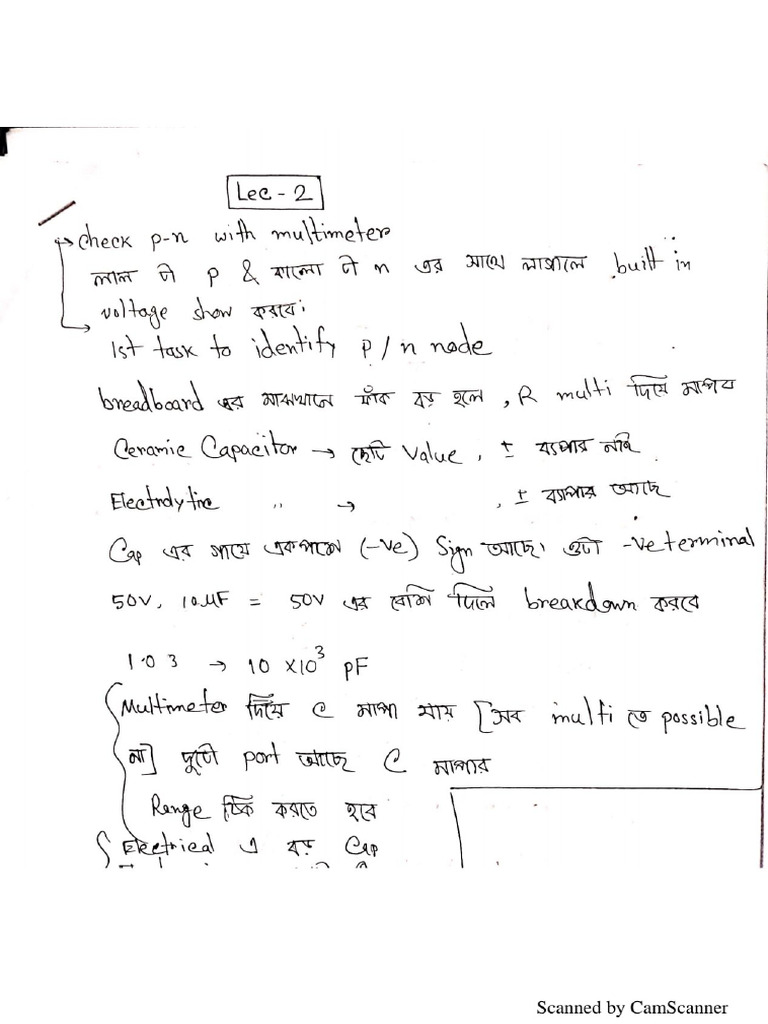 Lec - 2
check p-n with multimeter
লাল টা p & কালো টা n এর সাথে লাগালে built in
voltage show করবে।
1st task to identify p/n node
breadboard এর মাঝখানে ফাঁক বড় হলে, R multi দিয়ে মাপব
Ceramic Capacitor → ছোট value, ± ব্যাপার নাই
Electrolytic " → , ± ব্যাপার আছে
Cap এর গায়ে একপাশে (-ve) Sign আছে। ওটা -ve terminal
50V, 10μF = 50V এর বেশি দিলে breakdown করবে
103 → 10 x10³ pF
Multimeter দিয়ে C মাপা যায় [সব multi তে possible
না] দুটো port আছে C মাপার
Range ঠিক করতে হবে
Electrical এ বড় Cap
Scanned by CamScanner